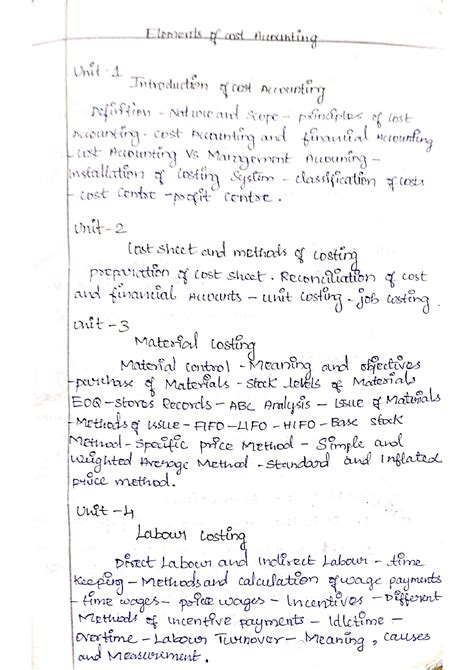 Elements of cost Accounting
Unit - 1
Introduction of cost Accounting
Definition - Nature and Scope - principles of cost
Accounting - cost Accounting and financial Accounting
- cost Accounting Vs Management Accouning -
Installation of costing System - classification of costs
- cost centre - profit centre .
Unit - 2
Cost sheet and methods of costing
preparation of cost sheet . Reconciliation of cost
and financial Accounts - unit costing - job costing .
Unit - 3
Material costing
Material control - Meaning and objectives
- purchase of Materials - stock levels of Materials
EOQ - Stores Records - ABC Analysis - Issue of Materials
- Methods of issue - FIFO - LIFO - HIFO - Base stock
Method - Specific price Method - Simple and
Weighted Average Method - Standard and Inflated
price method .
Unit - 4
Labour costing
Direct Labour and indirect Labour - time
keeping - Methods and calculation of wage payments
- time wages - wages - Incentives - Different
Methods of incentive payments - Idletime -
Overtime - Labour Turnover - Meaning , causes
and Measurement .